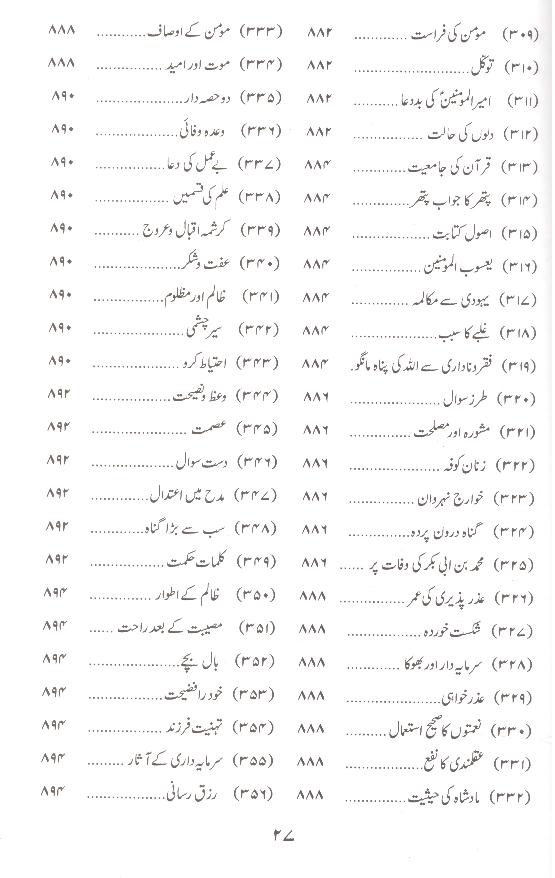 (۳۰۹) مؤمن کی فراست ............. ۸۸۲
(۳۱۰) توکل ............. ۸۸۲
(۳۱۱) امیرالمومنینؑ کی بددعا ............. ۸۸۲
(۳۱۲) دلوں کی حالت ............. ۸۸۲
(۳۱۳) قرآن کی جامعیت ............. ۸۸۴
(۳۱۴) پتھر کا جواب پتھر ............. ۸۸۴
(۳۱۵) اصول کتابت ............. ۸۸۴
(۳۱۶) یعسوب المومنین ............. ۸۸۴
(۳۱۷) یہودی سے مکالمہ ............. ۸۸۴
(۳۱۸) غلبے کا سبب ............. ۸۸۴
(۳۱۹) فقر و ناداری سے اللہ کی پناہ مانگو. ۸۸۴
(۳۲۰) طرز سوال ............. ۸۸۶
(۳۲۱) مشورہ اور مصلحت ............. ۸۸۶
(۳۲۲) زنان کوفہ ............. ۸۸۶
(۳۲۳) خوارج نہروان ............. ۸۸۶
(۳۲۴) گناہ درون پردہ ............. ۸۸۶
(۳۲۵) محمد بن ابی بکر کی وفات پر ...... ۸۸۶
(۳۲۶) عذر پذیری کی عمر ............. ۸۸۸
(۳۲۷) شکست خوردہ ............. ۸۸۸
(۳۲۸) سرمایہ دار اور بھوکا ............. ۸۸۸
(۳۲۹) عذر خواہی ............. ۸۸۸
(۳۳۰) نعمتوں کا صحیح استعمال ............. ۸۸۸
(۳۳۱) عقلمندی کا نفع ............. ۸۸۸
(۳۳۲) بادشاہ کی حیثیت ............. ۸۸۸
(۳۳۳) مومن کے اوصاف ............. ۸۸۸
(۳۳۴) موت اور امید ............. ۸۸۸
(۳۳۵) دو حصہ دار ............. ۸۹۰
(۳۳۶) وعدہ وفائی ............. ۸۹۰
(۳۳۷) بے عمل کی دعا ............. ۸۹۰
(۳۳۸) علم کی قسمیں ............. ۸۹۰
(۳۳۹) کرشمہ اقبال و عروج ............. ۸۹۰
(۳۴۰) عفت و شکر ............. ۸۹۰
(۳۴۱) ظالم اور مظلوم ............. ۸۹۰
(۳۴۲) سیر چشمی ............. ۸۹۰
(۳۴۳) احتیاط کرو ............. ۸۹۰
(۳۴۴) وعظ و نصیحت ............. ۸۹۲
(۳۴۵) عصمت ............. ۸۹۲
(۳۴۶) دست سوال ............. ۸۹۲
(۳۴۷) مدح میں اعتدال ............. ۸۹۲
(۳۴۸) سب سے بڑا گناہ ............. ۸۹۲
(۳۴۹) کلمات حکمت ............. ۸۹۲
(۳۵۰) ظالم کے اطوار ............. ۸۹۴
(۳۵۱) مصیبت کے بعد راحت ...... ۸۹۴
(۳۵۲) بال بچے ............. ۸۹۴
(۳۵۳) خود را فضیحت ............. ۸۹۴
(۳۵۴) تہنیت فرزند ............. ۸۹۴
(۳۵۵) سرمایہ داری کے آثار ......... ۸۹۴
(۳۵۶) رزق رسانی ............. ۸۹۴
۲۷